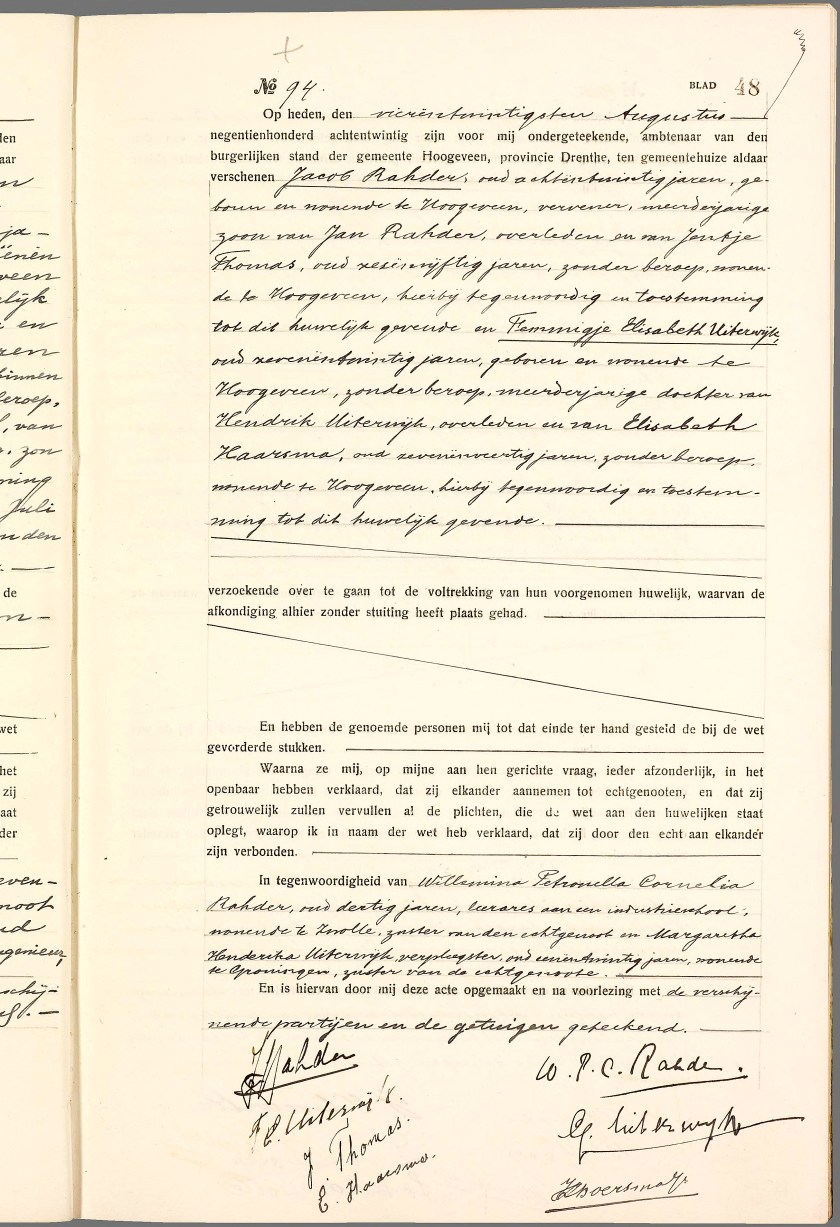 den
aar
ja-
ïenen
veen
elijk
en
zen
binnen
beroep,
van
zon
ning
Juli
nden
de
wet
het
zij
aat
der
even-
noot
nd
genieur,
schij-
No 94.
BLAD 48
Op heden, den vierentwintigsten Augustus
negentienhonderd achtentwintig zijn voor mij ondergeteekende, ambtenaar van den
burgerlijken stand der gemeente Hoogeveen, provincie Drenthe, ten gemeentehuize aldaar
verschenen Jacob Rahder, oud achtentwintig jaren, ge-
boren en wonende te Hoogeveen, vervener, meerderjarige
zoon van Jan Rahder, overleden en van Jentje
Thomas, oud zesenvijftig jaren, zonder beroep, wonen-
de te Hoogeveen, hierbij tegenwoordig en toestemming
tot dit huwelijk gevende en Femmigje Elisabeth Uiterwijk,
oud zevenentwintig jaren, geboren en wonende te
Hoogeveen, zonder beroep, meerderjarige dochter van
Hendrik Uiterwijk, overleden en van Elisabeth
Haarsma, oud zevenenveertig jaren, zonder beroep,
wonende te Hoogeveen, hierbij tegenwoordig en toestem-
ming tot dit huwelijk gevende.
verzoekende over te gaan tot de voltrekking van hun voorgenomen huwelijk, waarvan de
afkondiging alhier zonder stuiting heeft plaats gehad.
En hebben de genoemde personen mij tot dat einde ter hand gesteld de bij de wet
gevorderde stukken.
Waarna ze mij, op mijne aan hen gerichte vraag, ieder afzonderlijk, in het
openbaar hebben verklaard, dat zij elkander aannemen tot echtgenooten, en dat zij
getrouwelijk zullen vervullen al de plichten, die de wet aan den huwelijken staat
oplegt, waarop ik in naam der wet heb verklaard, dat zij door den echt aan elkander
zijn verbonden.
In tegenwoordigheid van Willemina Petronella Cornelia
Rahder, oud dertig jaren, leerares aan een industrieschool,
wonende te Zwolle, zuster van den echtgenoot en Margaretha
Henderika Uiterwijk, verpleegster, oud eenentwintig jaren, wonende
te Groningen, zuster van de echtgenoote.
En is hiervan door mij deze acte opgemaakt en na voorlezing met de verschij-
nende partijen en de getuigen geteekend.
J Rahder
W. P. C. Rahder.
F E. Uiterwijk.
G. Uiterwijk
J. Thomas.
E. Haarsma.